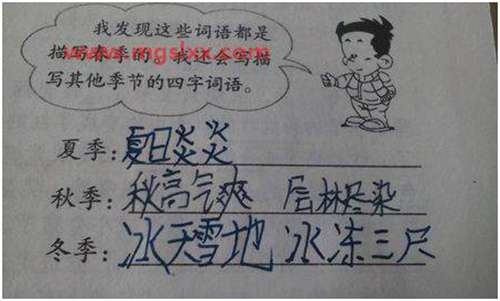 我发现这些词语都是
描写春季的，我还会写描
写其他季节的四字词语。
www.mgslxx.com
夏季：夏日炎炎
秋季：秋高气爽 层林尽染
冬季：冰天雪地 冰冻三尺